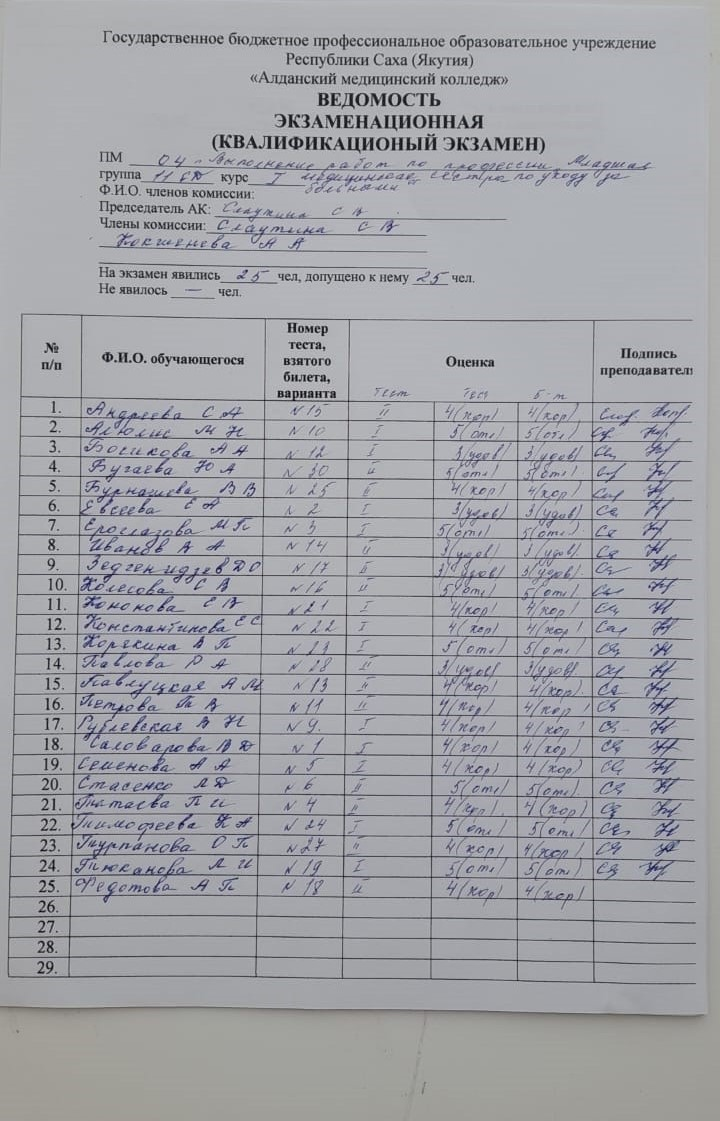 Государственное бюджетное профессиональное образовательное учреждение
Республики Саха (Якутия)
«Алданский медицинский колледж»
ВЕДОМОСТЬ
ЭКЗАМЕНАЦИОННАЯ
(КВАЛИФИКАЦИОНЫЙ ЭКЗАМЕН)
ПМ 04 „Выполнение работ по профессии Младшая
группа 11 СД курс I медицинская сестра по уходу за
Ф.И.О. членов комиссии: больными"
Председатель АК: Слаутина С В
Члены комиссии: Слаутина С В
Кокшенева А А
На экзамен явились 25 чел, допущено к нему 25 чел.
Не явилось — чел.
№ п/п Ф.И.О. обучающегося Номер теста, взятого билета, варианта Оценка Подпись преподавателя
Тест Тест б-т
1. Андреева С А N 15 II 4(хор) 4(хор)
2. М Н N 10 I 5(отл) 5(отл)
3. Босикова А А N 12 I 3(удов) 3(удов)
4. Бугаева Ю А N 30 II 5(отл) 5(отл)
5. Бурнашева В В N 25 II 4(хор) 4(хор)
6. Евсеева Е А N 2 I 3(удов) 3(удов)
7. М П N 3 I 5(отл) 5(отл)
8. Иванов В А N 14 II 3(удов) 3(удов)
9. Зедгенидзев Д О N 17 II 3(удов) 3(удов)
10. Колесова С В N 16 II 5(отл) 5(отл)
11. Кононова С В N 21 I 4(хор) 4(хор)
12. Константинова Е С N 22 I 4(хор) 4(хор)
13. Корякина В П N 23 I 5(отл) 5(отл)
14. Павлова Р А N 28 II 3(удов) 3(удов)
15. Павлуцкая А М N 13 II 4(хор) 4(хор)
16. Петрова Т В N 11 II 4(хор) 4(хор)
17. Рублевская В Н N 9. I 4(хор) 4(хор)
18. Саловарова В Д N 1 I 4(хор) 4(хор)
19. Семенова А А N 5 I 4(хор) 4(хор)
20. Стасенко Л Д N 6 II 5(отл) 5(отл)
21. Татаева П И N 4 II 4(хор) 4(хор)
22. Тимофеева К А N 24 I 5(отл) 5(отл)
23. Турпанова О П N 27 II 4(хор) 4(хор)
24. Тюканова Л И N 19 I 5(отл) 5(отл)
25. Федотова А П N 18 II 4(хор) 4(хор)
26.
27.
28.
29.